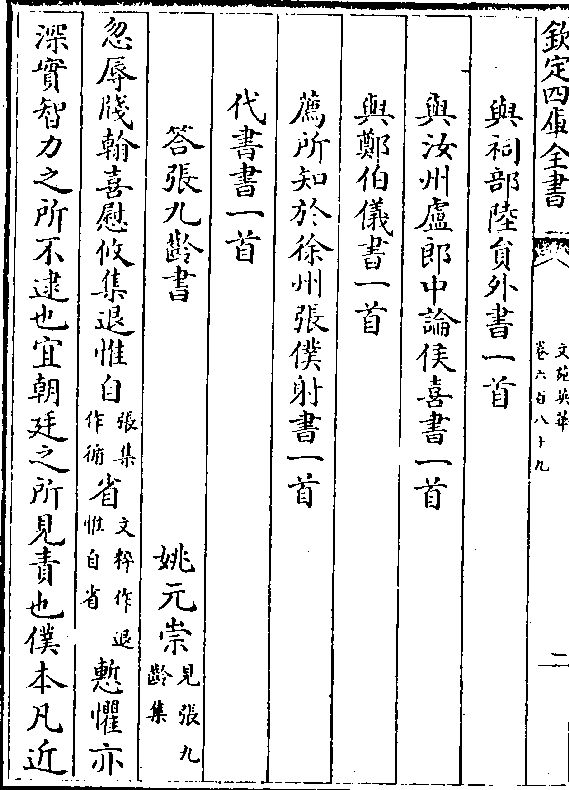 欽定四庫全書
文苑英華
卷六百八十九
二
與祠部陸員外書一首
與汝州盧郎中論侯喜書一首
與鄭伯儀書一首
薦所知於徐州張僕射書一首
代書書一首
答張九齡書 姚元崇見張九齡集
忽辱牋翰喜慰攸集退惟自張集作循省文粹作退惟自省慙懼亦
深實智力之所不逮也宜朝廷之所見責也僕本凡近